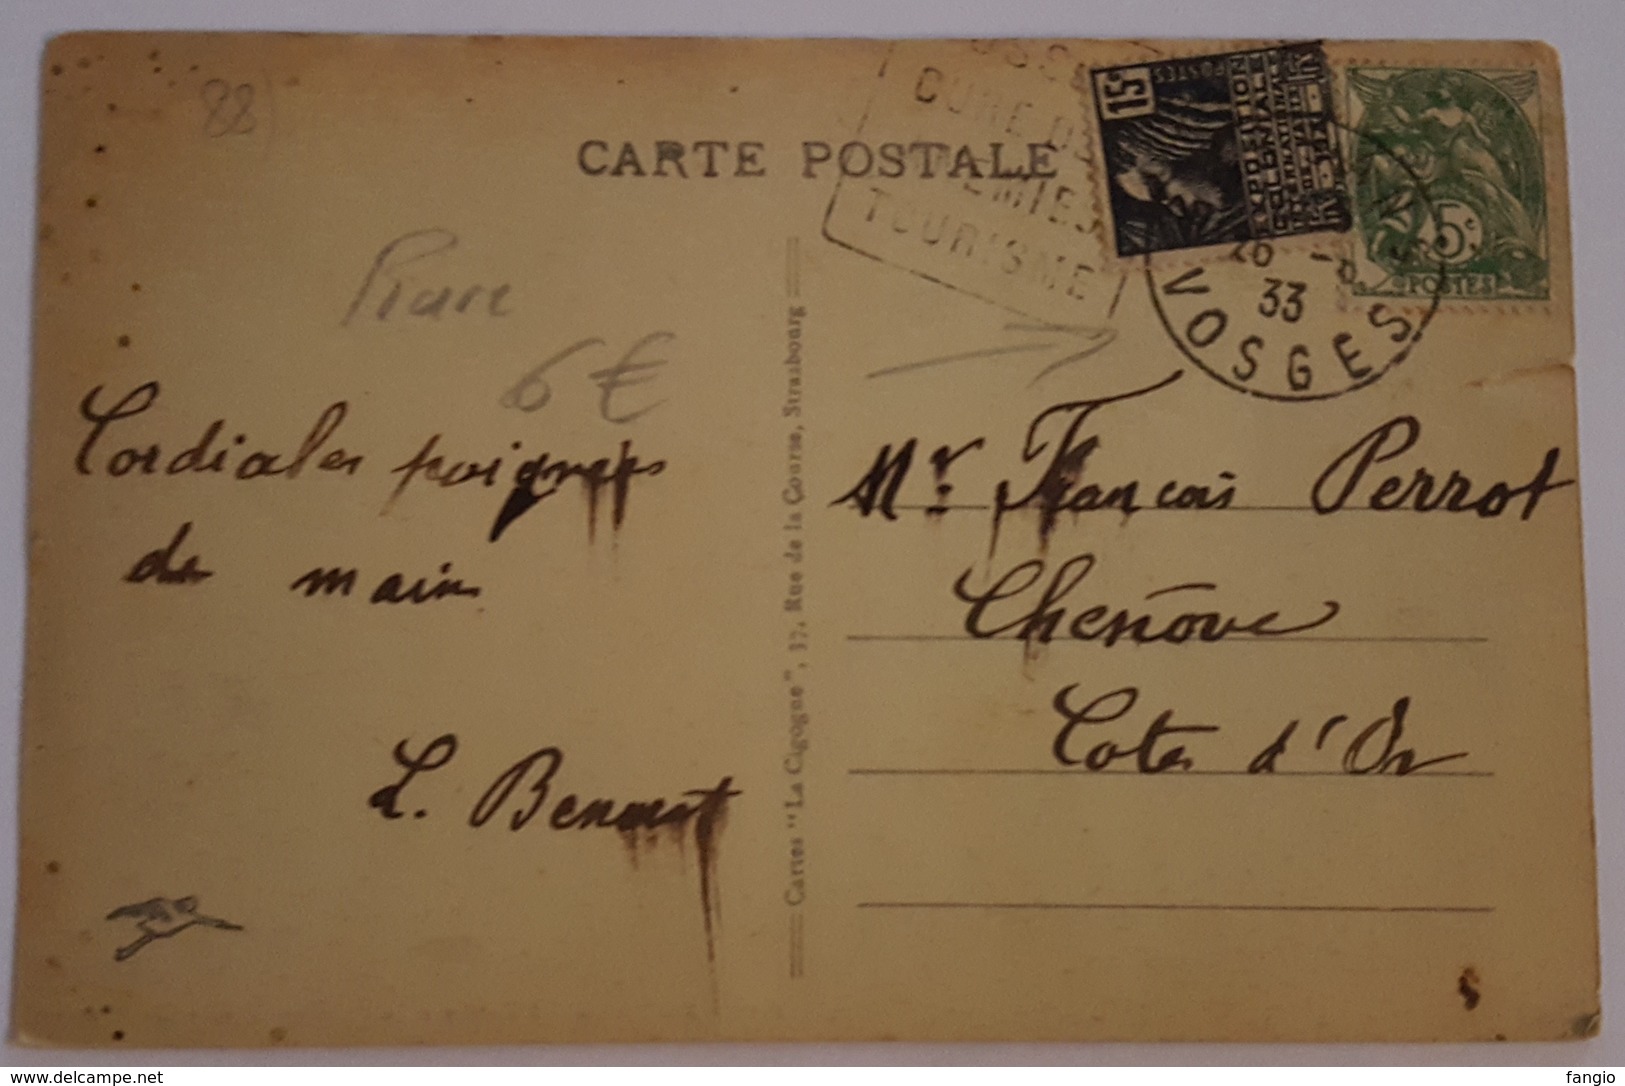 88
CARTE POSTALE
CURE D'
TOURISME
15c
POSTES
EXPOSITION
COLONIALE
INTERNATIONALE
PARIS 1931
5c
POSTES
26 -8
33
VOSGES
6 €
Cordiales poignées
de main
L. Bennout
Cartes "La Cigogne", 37, Rue de la Course, Strasbourg
Mr. François Perrot
Chenôve
Cote d'Or
https://www.delcampe.net
fangio